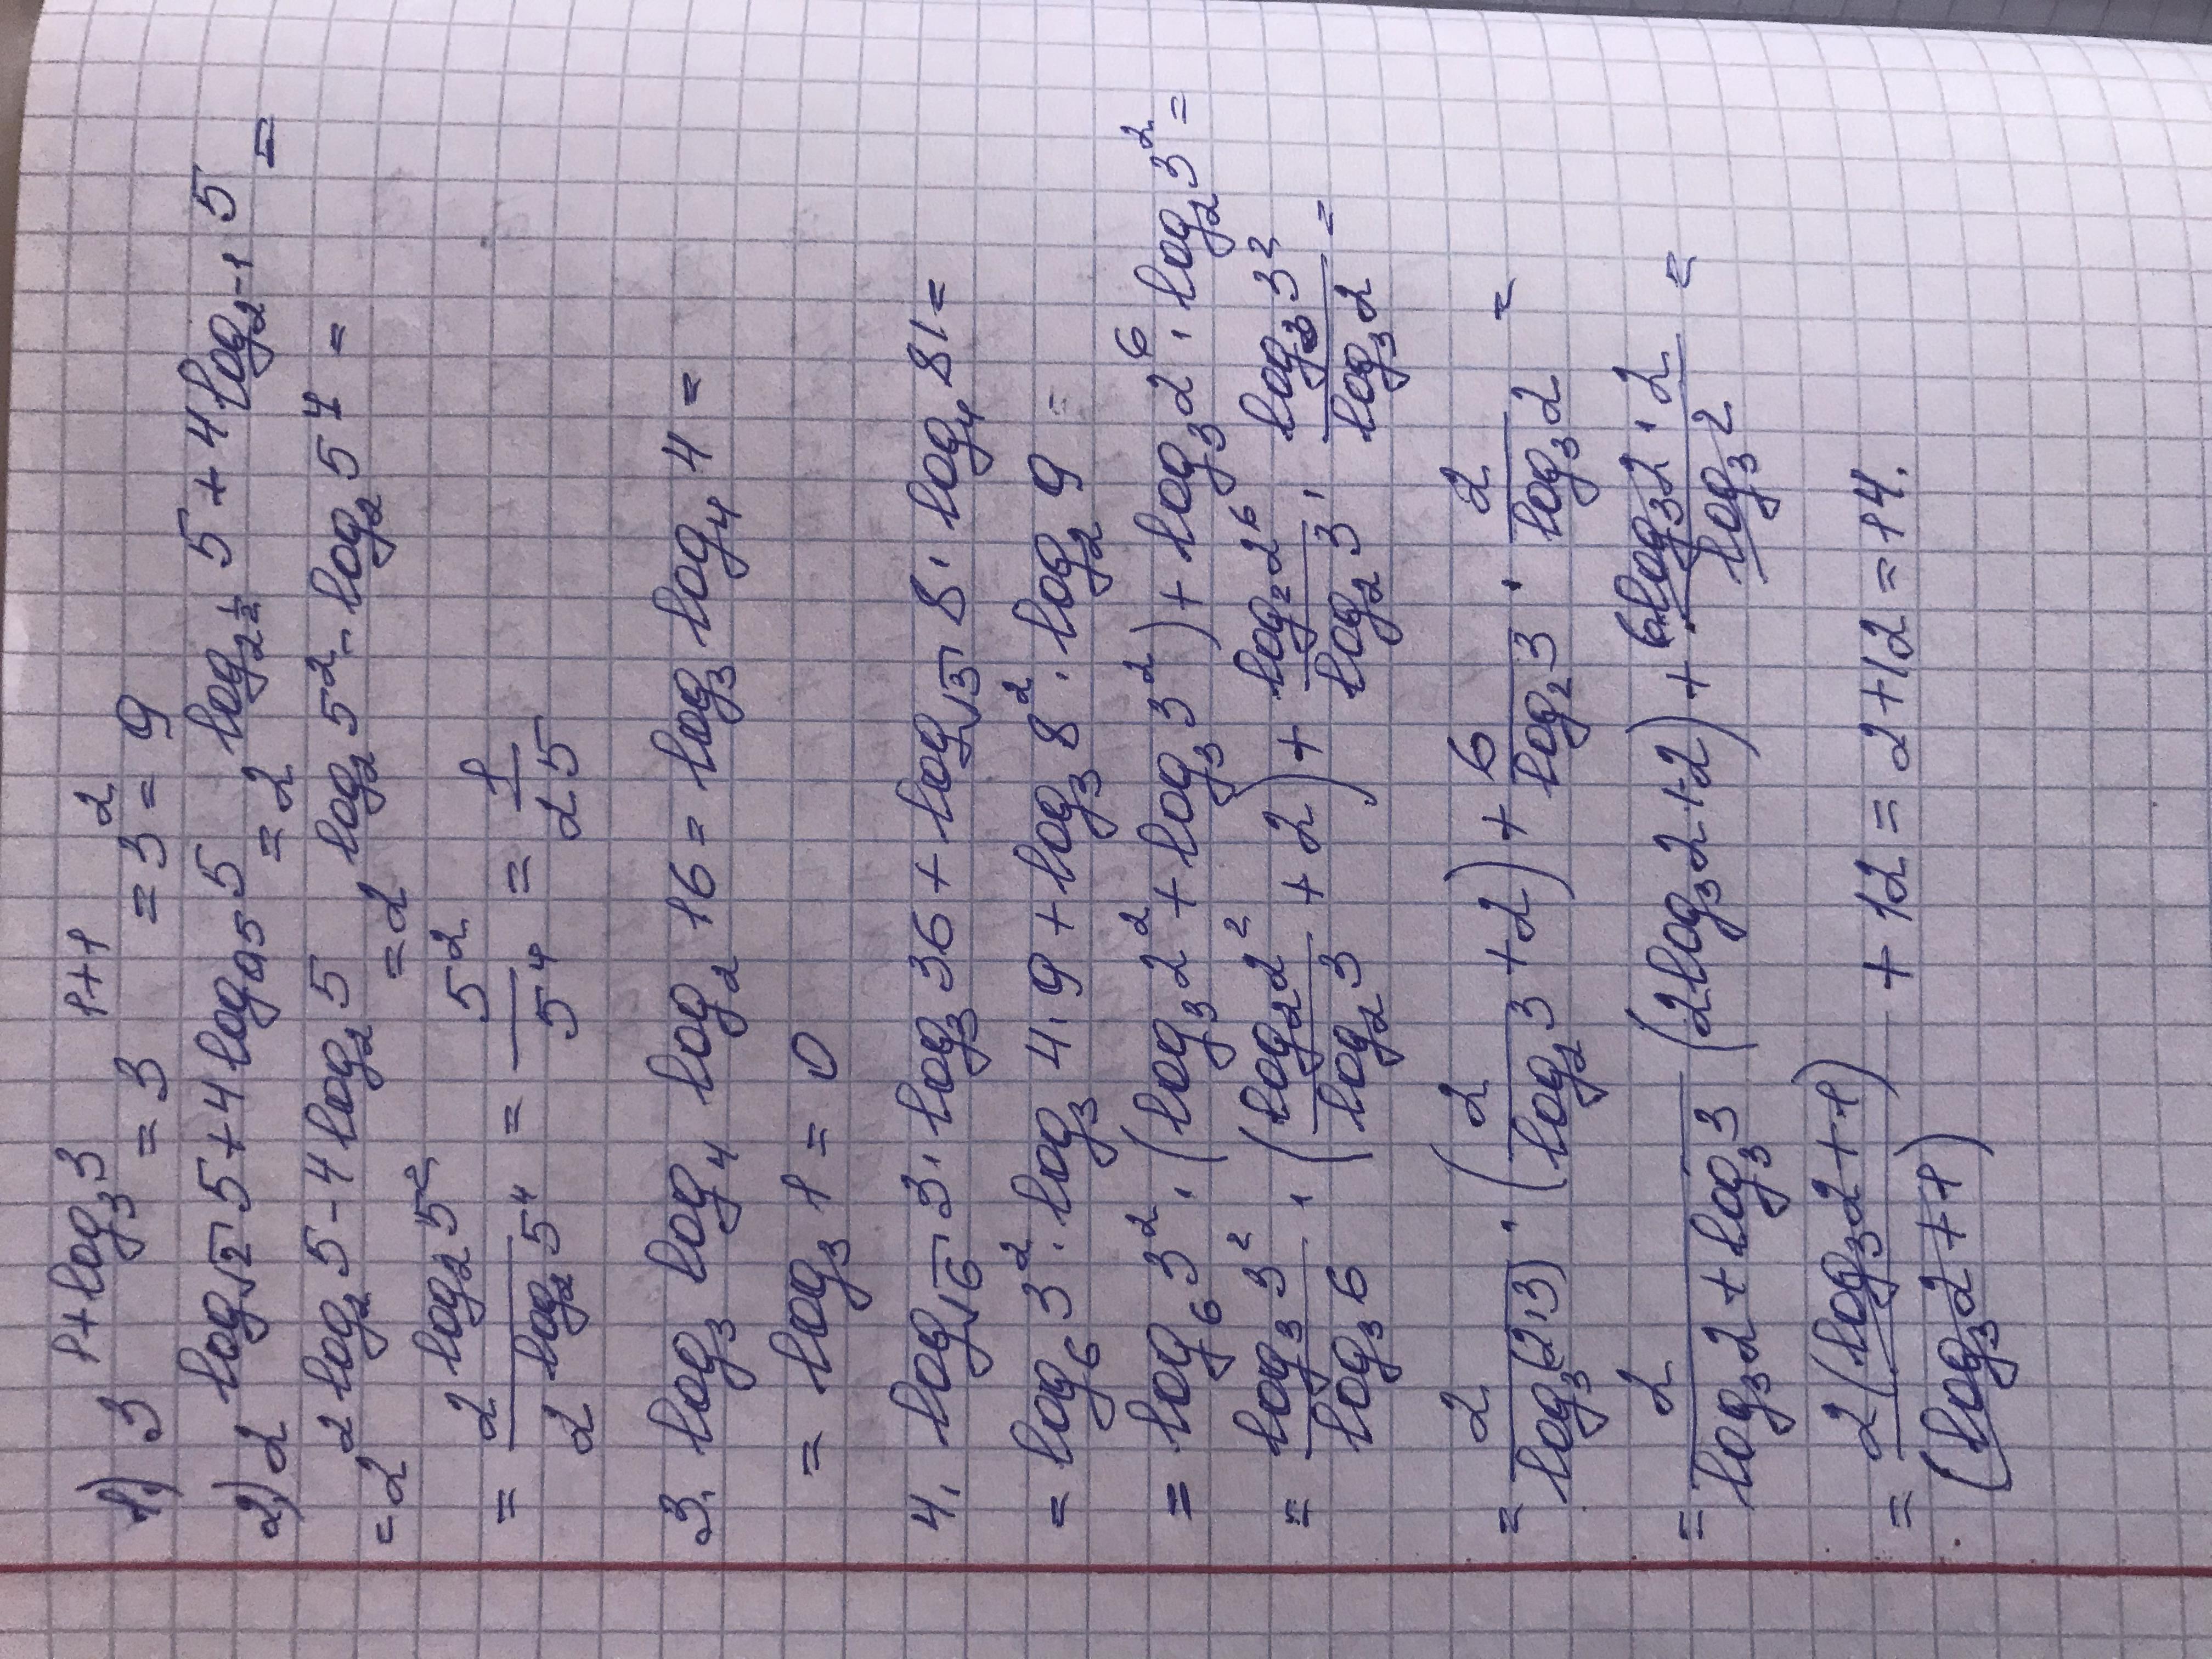 1) 3^{1+log_3 3} = 3^{1+1} = 3^2 = 9
2) 2^{log_{√2} 5 + 4 log_{0,5} 5} = 2^{log_{2^{1/2}} 5 + 4 log_{2^{-1}} 5} =
= 2^{2 log_2 5 - 4 log_2 5} = 2^{log_2 5^2 - log_2 5^4} =
= \frac{2^{log_2 5^2}}{2^{log_2 5^4}} = \frac{5^2}{5^4} = \frac{1}{25}
3. log_3 log_4 log_2 16 = log_3 log_4 4 =
= log_3 1 = 0
4. log_{√6} 3 · log_3 36 + log_{√3} 8 · log_4 81 =
= log_6 3^2 · log_3 4·9 + log_3 8^2 · log_2 9 =
= log_6 3^2 · (log_3 2^2 + log_3 3^2) + log_3 2^6 · log_2 3^2 =
= \frac{log_3 3^2}{log_3 6} · (\frac{log_2 2^2}{log_2 3} + 2) + \frac{log_2 2^6}{log_2 3} · \frac{log_3 3^2}{log_3 2} =
= \frac{2}{log_3 (2·3)} · (\frac{2}{log_2 3} + 2) + \frac{6}{log_2 3} · \frac{2}{log_3 2} =
= \frac{2}{log_3 2 + log_3 3} (2 log_3 2 + 2) + \frac{6 log_3 2 · 2}{log_3 2} =
= \frac{2 (log_3 2 + 1)}{(log_3 2 + 1)} + 12 = 2 + 12 = 14.